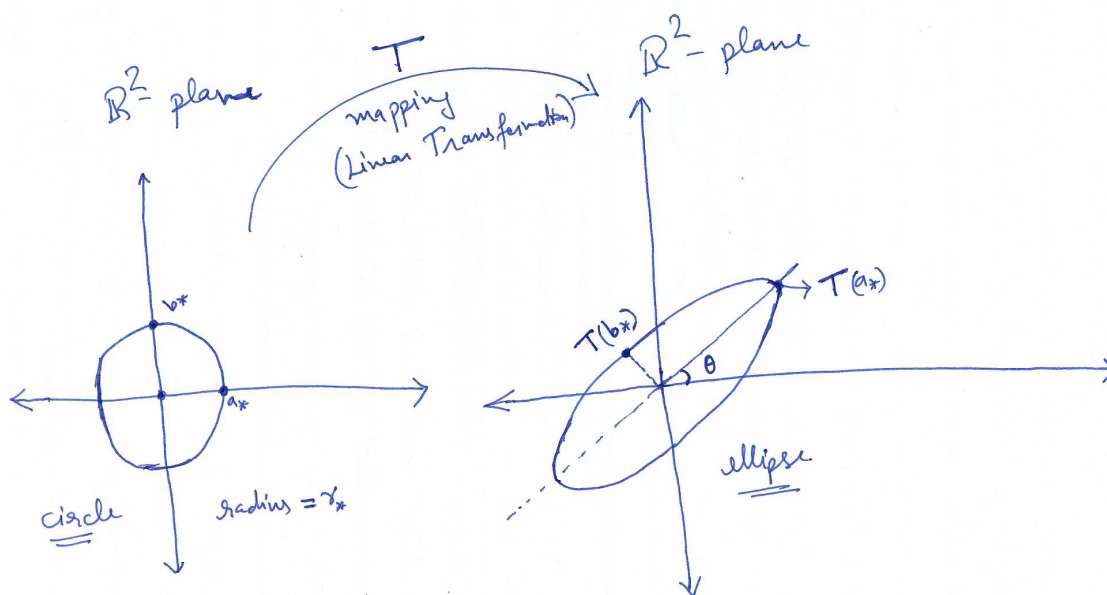 ℝ²- plane
T
mapping
(Linear Transformation)
ℝ²- plane
b*
a*
circle
radius = r*
T(a*)
T(b*)
θ
ellipse